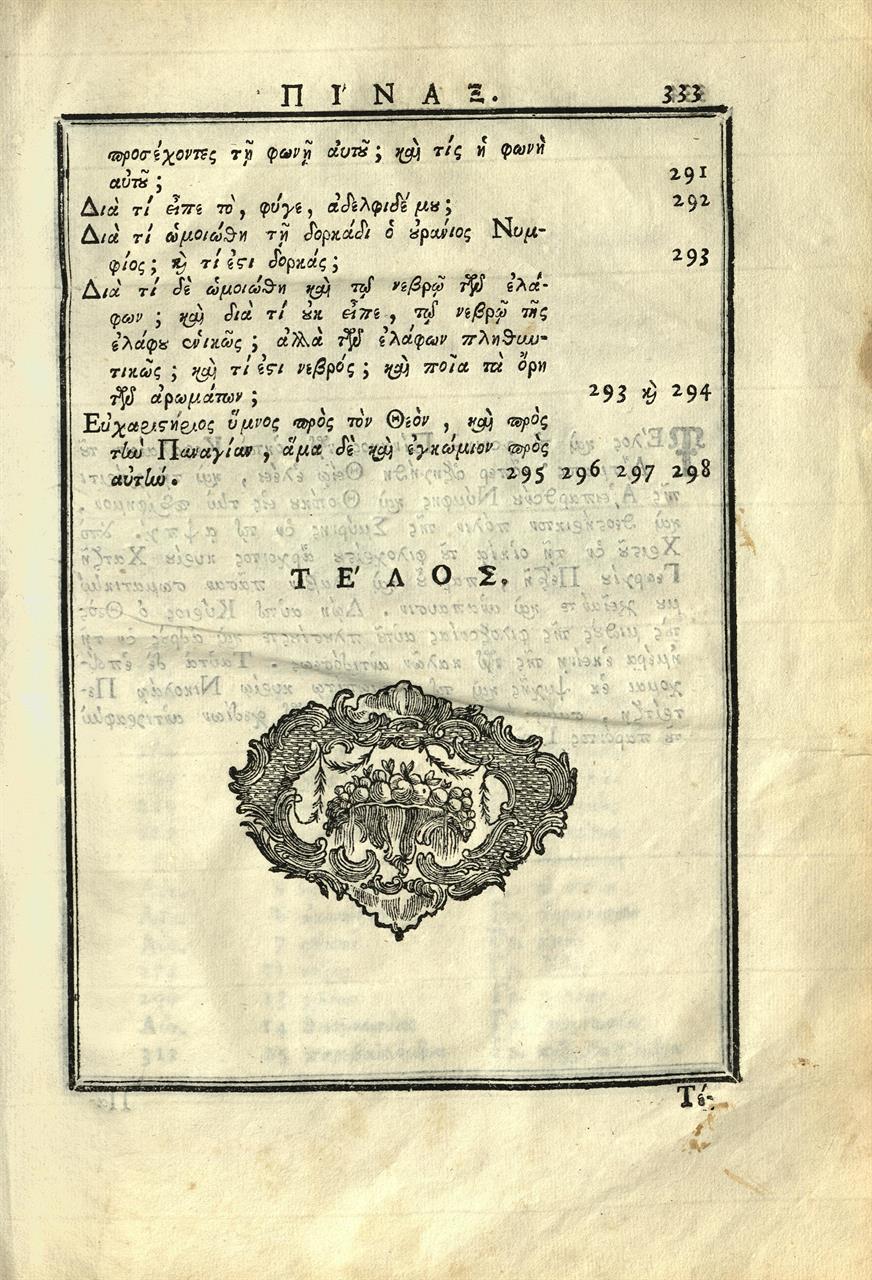 ΠΙ΄ΝΑΞ. 333
προσέχοντες τῇ φωνῇ αὐτȣ͂; καὶ τίς ἡ φωνὴ
αὐτȣ͂; 291
Διὰ τί εἶπε τὸ, φύγε, ἀδελφιδέ μȣ; 292
Διὰ τί ὡμοιώθη τῇ δορκάδι ὁ ȣ̓ράνιος Νυμ-
φίος; ϗ τί ἐϛι δορκάς; 293
Διὰ τί δὲ ὡμοιώθη καὶ τῷ νεβρῷ τῶν ἐλά-
φων; καὶ διὰ τί ȣ̓κ εἶπε, τῷ νεβρῷ τῆς
ἐλάφȣ ἑνικῶς; ἀλλὰ τῶν ἐλάφων πληθυν-
τικῶς; καὶ τί ἐϛι νεβρός; καὶ ποῖα τὰ ὄρη
τῶν ἀρωμάτων; 293 ϗ 294
Εὐχαριϛήριος ὕμνος πρὸς τὸν Θεὸν, καὶ πρὸς
τὴν Παναγίαν, ἅμα δὲ καὶ ἐγκώμιον πρὸς
αὐτήν. 295 296 297 298
ΤΕ΄ΛΟΣ.
Τέ-